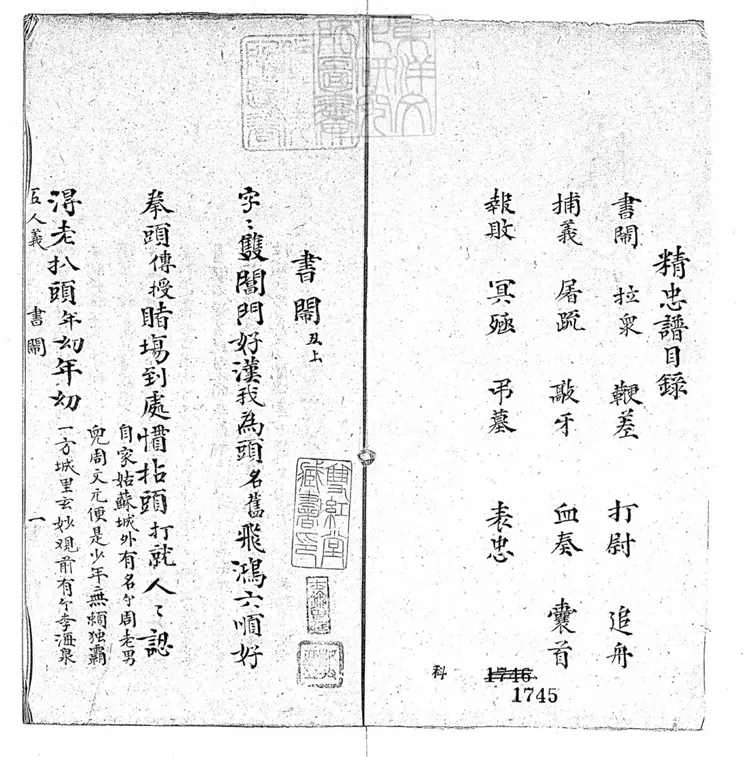 精忠譜目錄
書鬧 拉衆 鞭差 打尉 追舟
捕義 屠疏 敲牙 血奏 囊首
報敗 冥殛 弔墓 表忠
科
1746
1745
書鬧 丑上
字〻雙 闔門好漢我為頭名舊飛鴻六順好
拳頭傳授賭場到處慣拈頭打就人〻認
得老扒頭年幼年幼
自家姑蘇城外有名个周老男
兒周文元便是少年無賴独霸
一方城里玄妙观前有个李海泉
五人義 書鬧 一
雙紅堂
藏書印